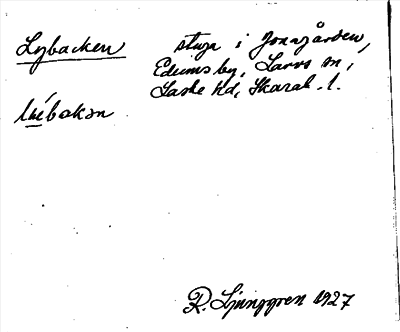 Lybacken stuga i Jonsgården,
Edumsby, Larvs sn,
Laske hd, Skarab. l.
lu̇́bakan
R. Ljunggren 1927